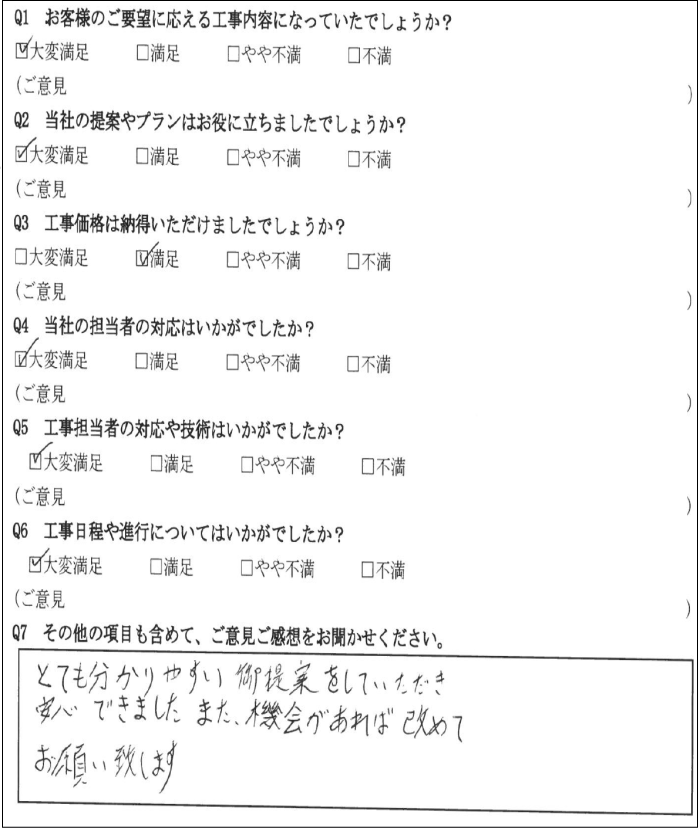 Q1 お客様のご要望に応える工事内容になっていたでしょうか？
☑大変満足 □満足 □やや不満 □不満
(ご意見 )
Q2 当社の提案やプランはお役に立ちましたでしょうか？
☑大変満足 □満足 □やや不満 □不満
(ご意見 )
Q3 工事価格は納得いただけましたでしょうか？
□大変満足 ☑満足 □やや不満 □不満
(ご意見 )
Q4 当社の担当者の対応はいかがでしたか？
☑大変満足 □満足 □やや不満 □不満
(ご意見 )
Q5 工事担当者の対応や技術はいかがでしたか？
☑大変満足 □満足 □やや不満 □不満
(ご意見 )
Q6 工事日程や進行についてはいかがでしたか？
☑大変満足 □満足 □やや不満 □不満
(ご意見 )
Q7 その他の項目も含めて、ご意見ご感想をお聞かせください。
とても分かりやすい御提案をしていただき
安心できました また、機会があれば改めて
お願い致します